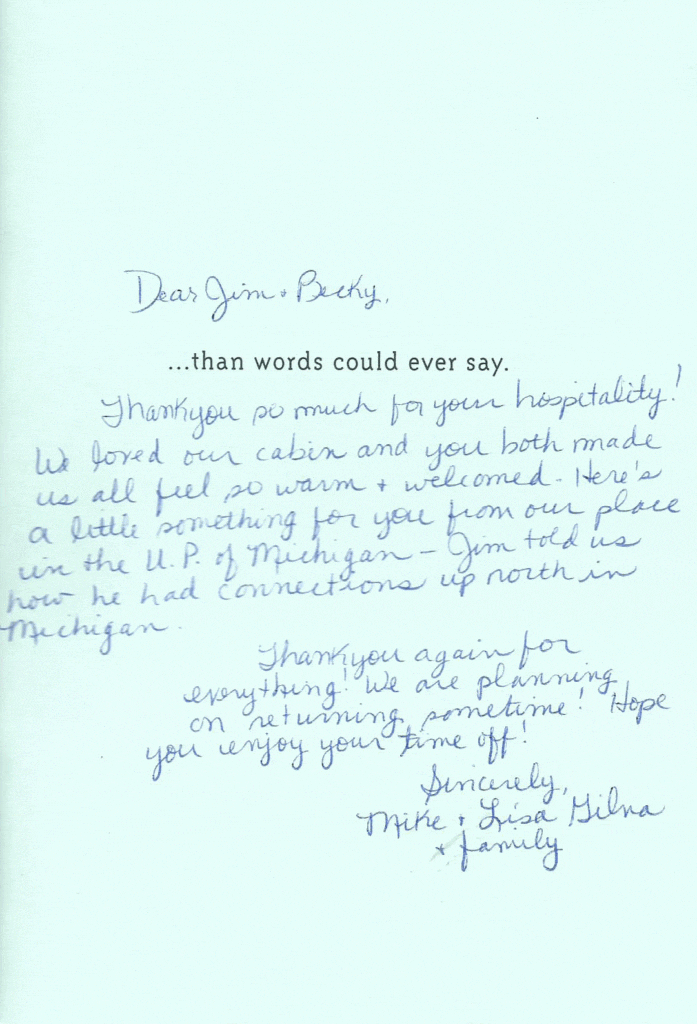 Dear Jim + Becky,
...than words could ever say.
Thankyou so much for your hospitality!
We loved our cabin and you both made
us all feel so warm + welcomed. Here's
a little something for you from our place
in the U.P. of Michigan - Jim told us
how he had connections up north in
Michigan.
Thankyou again for
everything! We are planning
on returning sometime! Hope
you enjoy your time off!
Sincerely,
Mike + Lisa Gilna
+ family